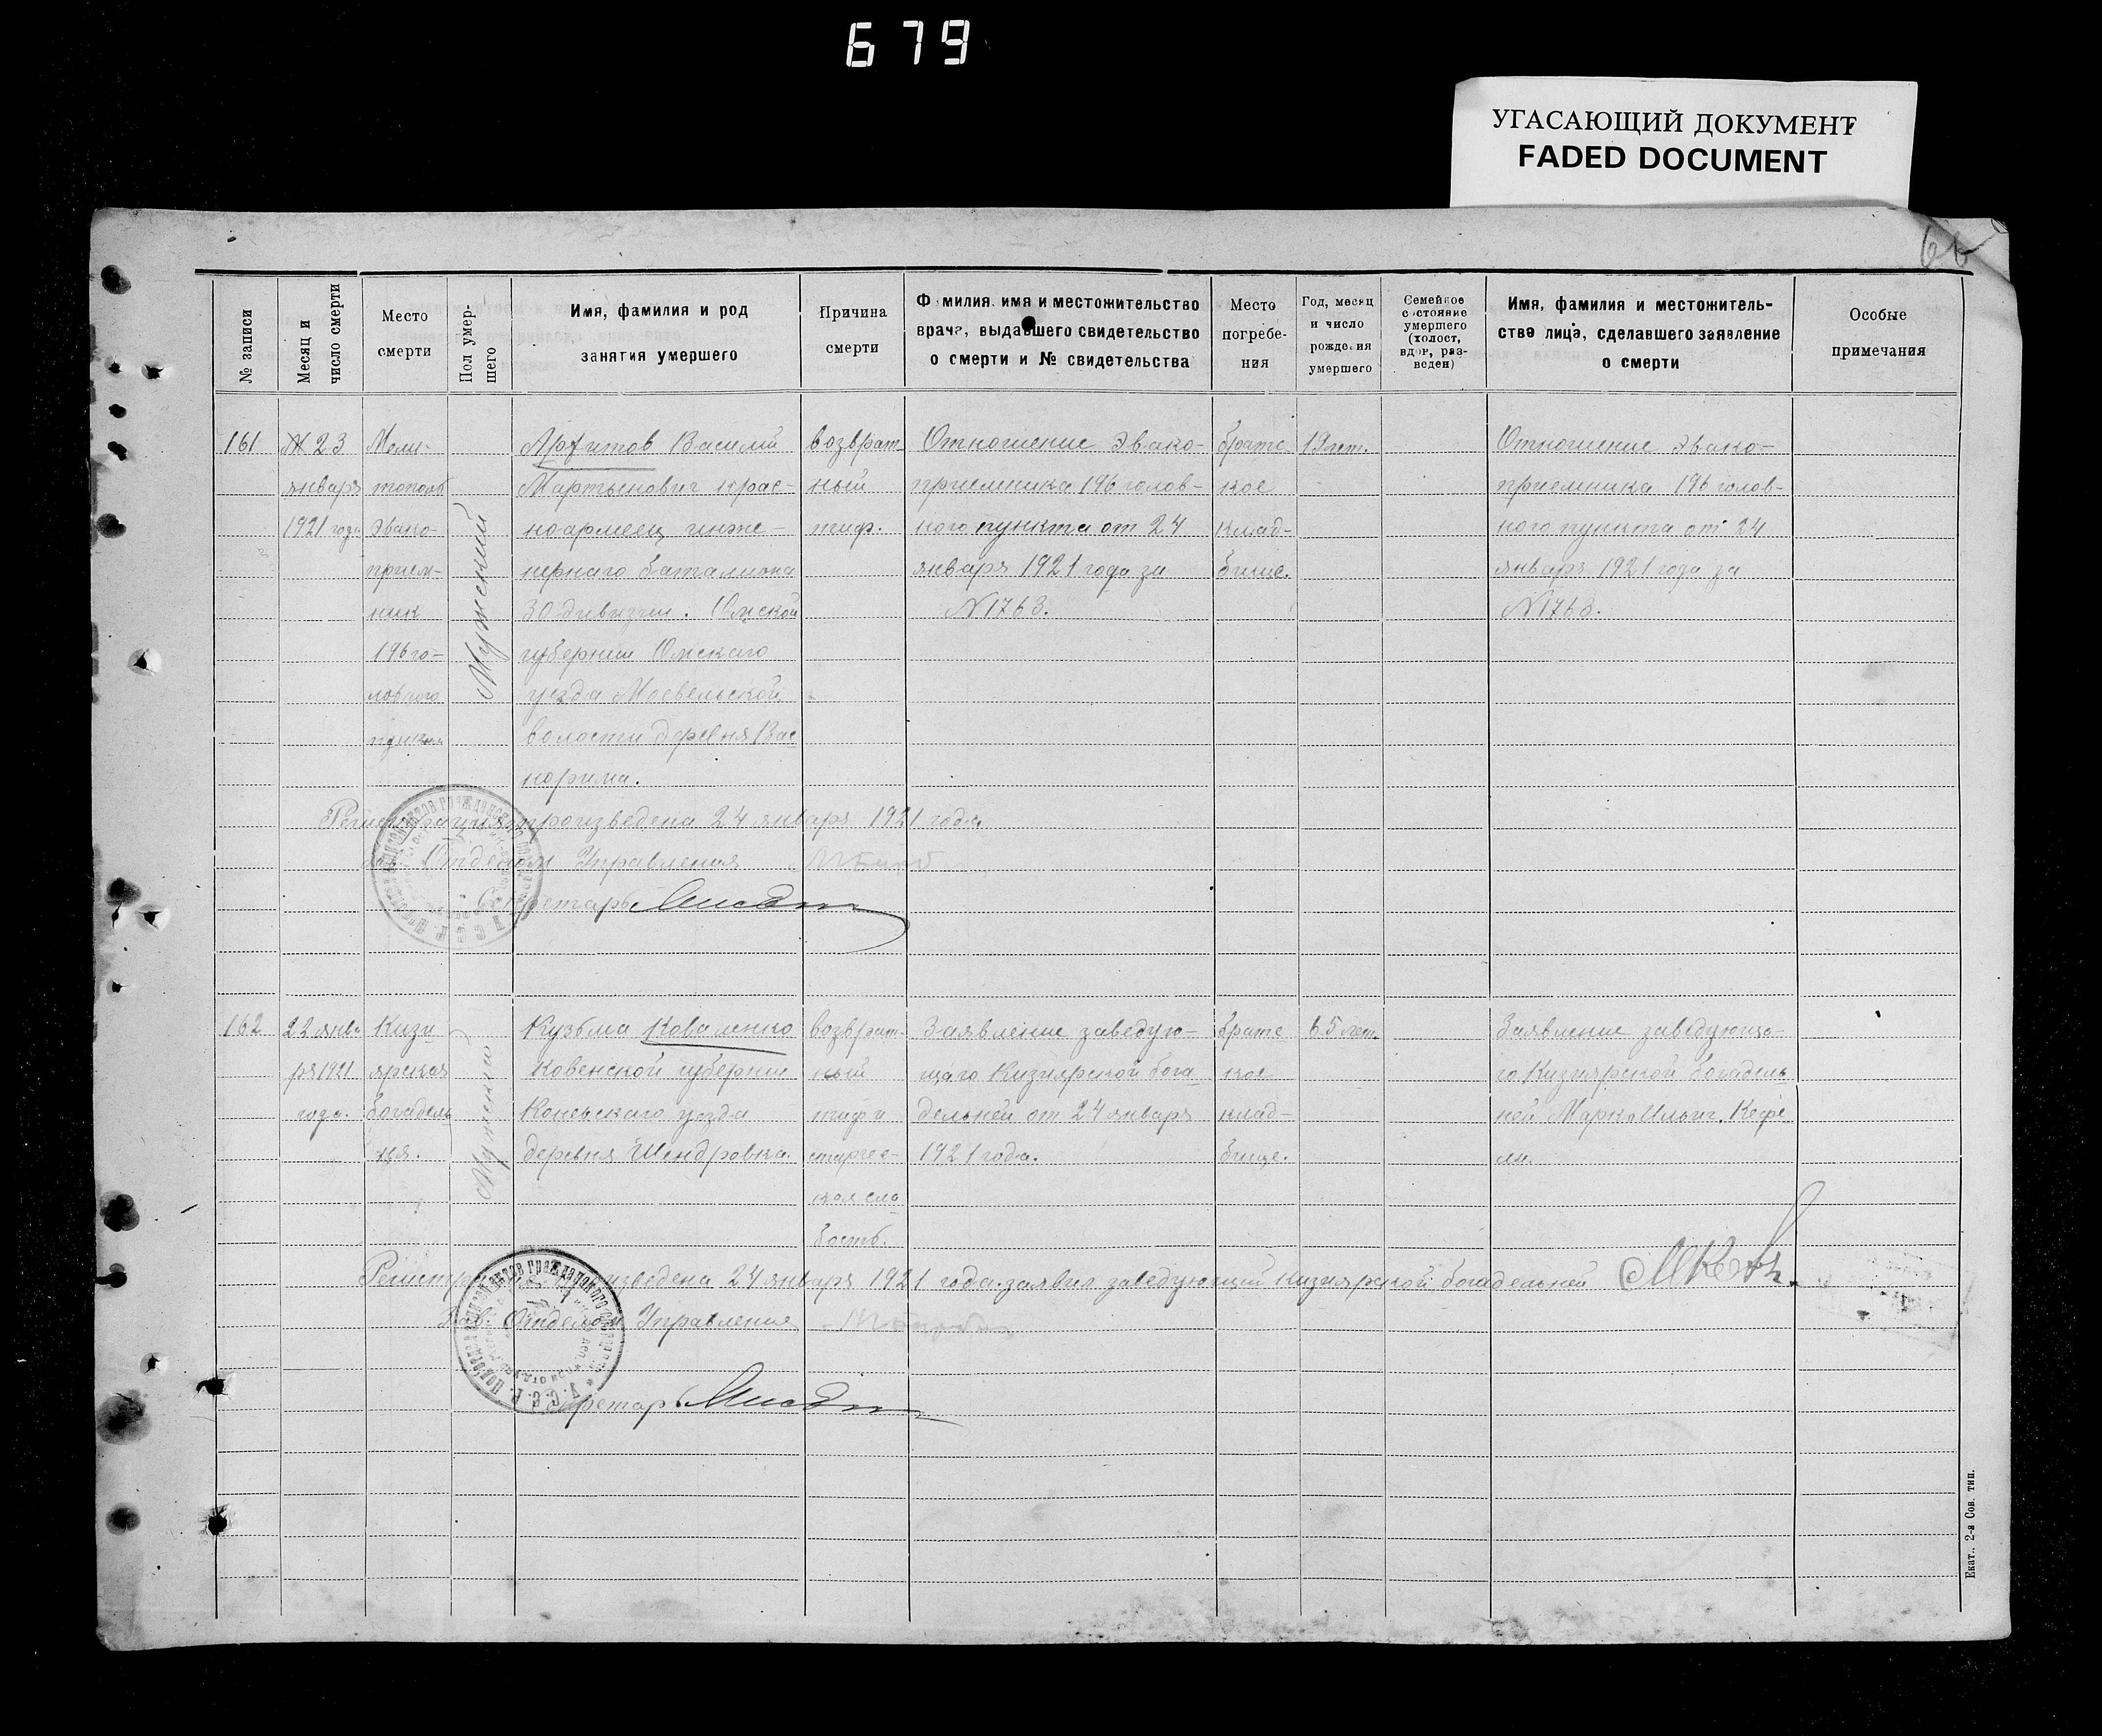 679
УГАСАЮЩИЙ ДОКУМЕНТ
FADED DOCUMENT
66
№ записи
Месяц и
число смерти
Место
смерти
Пол умер-
шего
Имя, фамилия и род
занятия умершего
Причина
смерти
Фамилия, имя и местожительство
врача, выдавшего свидетельство
о смерти и № свидетельства
Место
погребе-
ния
Год, месяц
и число
рождения
умершего
Семейное
состояние
умершего
(холост,
вдов, раз-
веден)
Имя, фамилия и местожитель-
ство лица, сделавшего заявление
о смерти
Особые
примечания
161
23
января
1921 года
Мели-
тополь
Эвако-
прием-
ник
196 го-
ловного
пункта
Мужеский
Василий
Мартынович крас-
ноармеец инже-
нернаго баталиона
30 дивизии. Омской
губернии Омскаго
уезда
волости деревня
возврат-
ный
тиф.
Отношение Эвако-
приемника 196 голов-
ного пункта от 24
января 1921 года за
№1763.
братс
кое
клад-
бище.
19 лет.
Отношение Эвако-
приемника 196 голов-
ного пункта от 24
января 1921 года за
№1763.
Регистрация произведена 24 января 1921 года
Зав. Отделом Управления
Секретарь
162
22 янва
ря 1921
года.
Кизи
ярская
богадель
ня.
Мужеский
Кузьма Коваленко
Ковенской губернии
уезда
деревня Шендровка.
возврат-
ный
тиф и
старчес-
кая сла
бость.
Заявление заведую-
щаго Кизиярской бога
дельней от 24 января
1921 года.
братс
кое
клад-
бище.
65 лет.
Заявление заведующа-
го Кизиярской богадель
ней Марк Ильич. Кефе
ли.
Регистрация произведена 24 января 1921 года. заявил заведующий Кизиярской богадельней
Зав. Отделом Управления
Секретарь
Екат., 2-я Сов. тип.